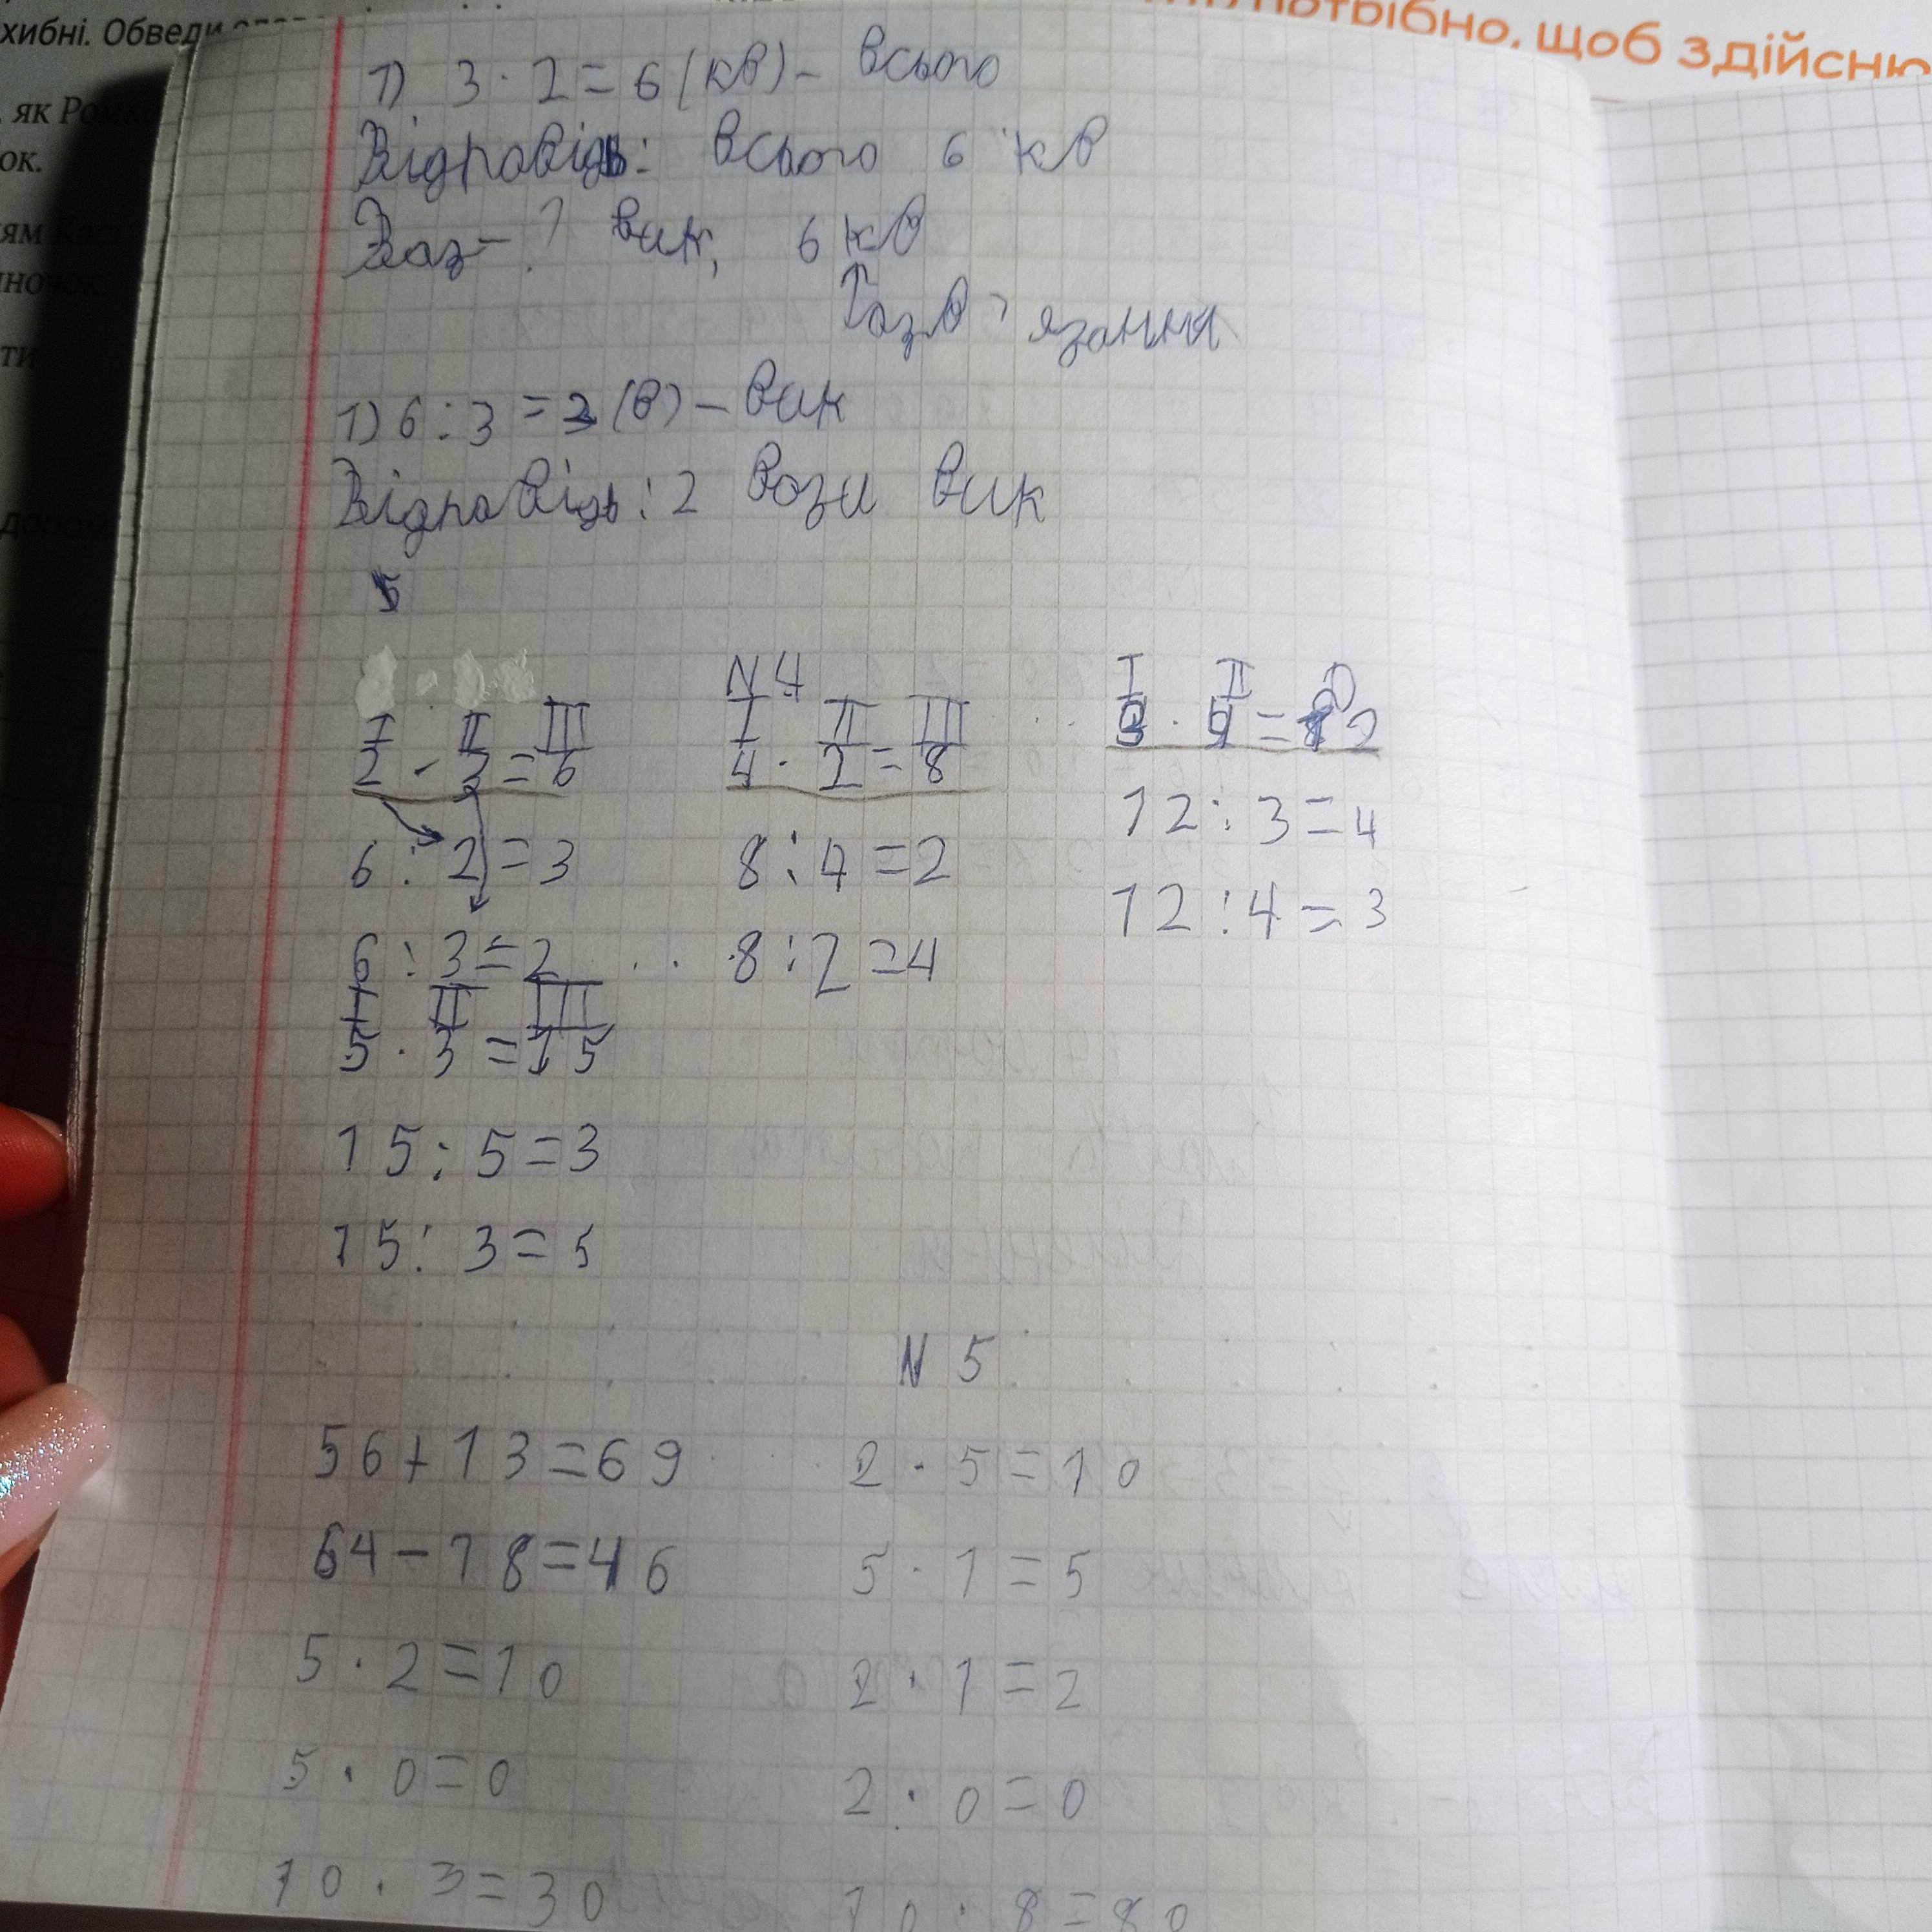 хибні. Обведи
потрібно, щоб здійсню
як Ромко
ок.
ям Касі
иночок.
ти
допом
1) 3 · 2 = 6 (кв) - всього
Відповідь: всього 6 кв
Ваз - ? вик, 6 кв
Розв'язання
1) 6 : 3 = 2 (в) - вик
Відповідь: 2 вази вик
5
N 4
I II III
2 · 3 = 6
6 : 2 = 3
6 : 3 = 2
I II III
4 · 2 = 8
8 : 4 = 2
8 : 2 = 4
I II
3 · 4 = 12
12 : 3 = 4
12 : 4 = 3
I II III
5 · 3 = 15
15 : 5 = 3
15 : 3 = 5
N 5
56 + 13 = 69
64 - 18 = 46
5 · 2 = 10
5 · 0 = 0
10 · 3 = 30
2 · 5 = 10
5 · 1 = 5
2 · 1 = 2
2 · 0 = 0
10 · 8 = 80